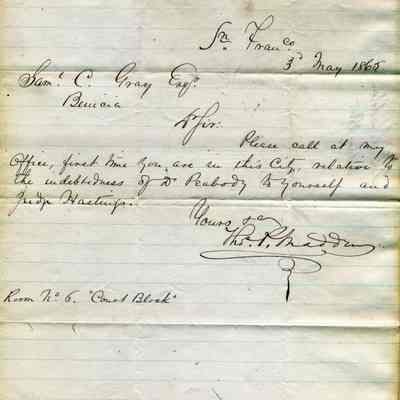 Sn. Franco.
3d May 1865
Saml. C. Gray Esqr.
Benicia
Dr Sir:
Please call at my
Office, first time you are in this City, relative to
the indebtedness of Dr Peabody to yourself and
Judge Hastings.
Yours &c
Thos. P. Madden
Room No 6. "Court Block"